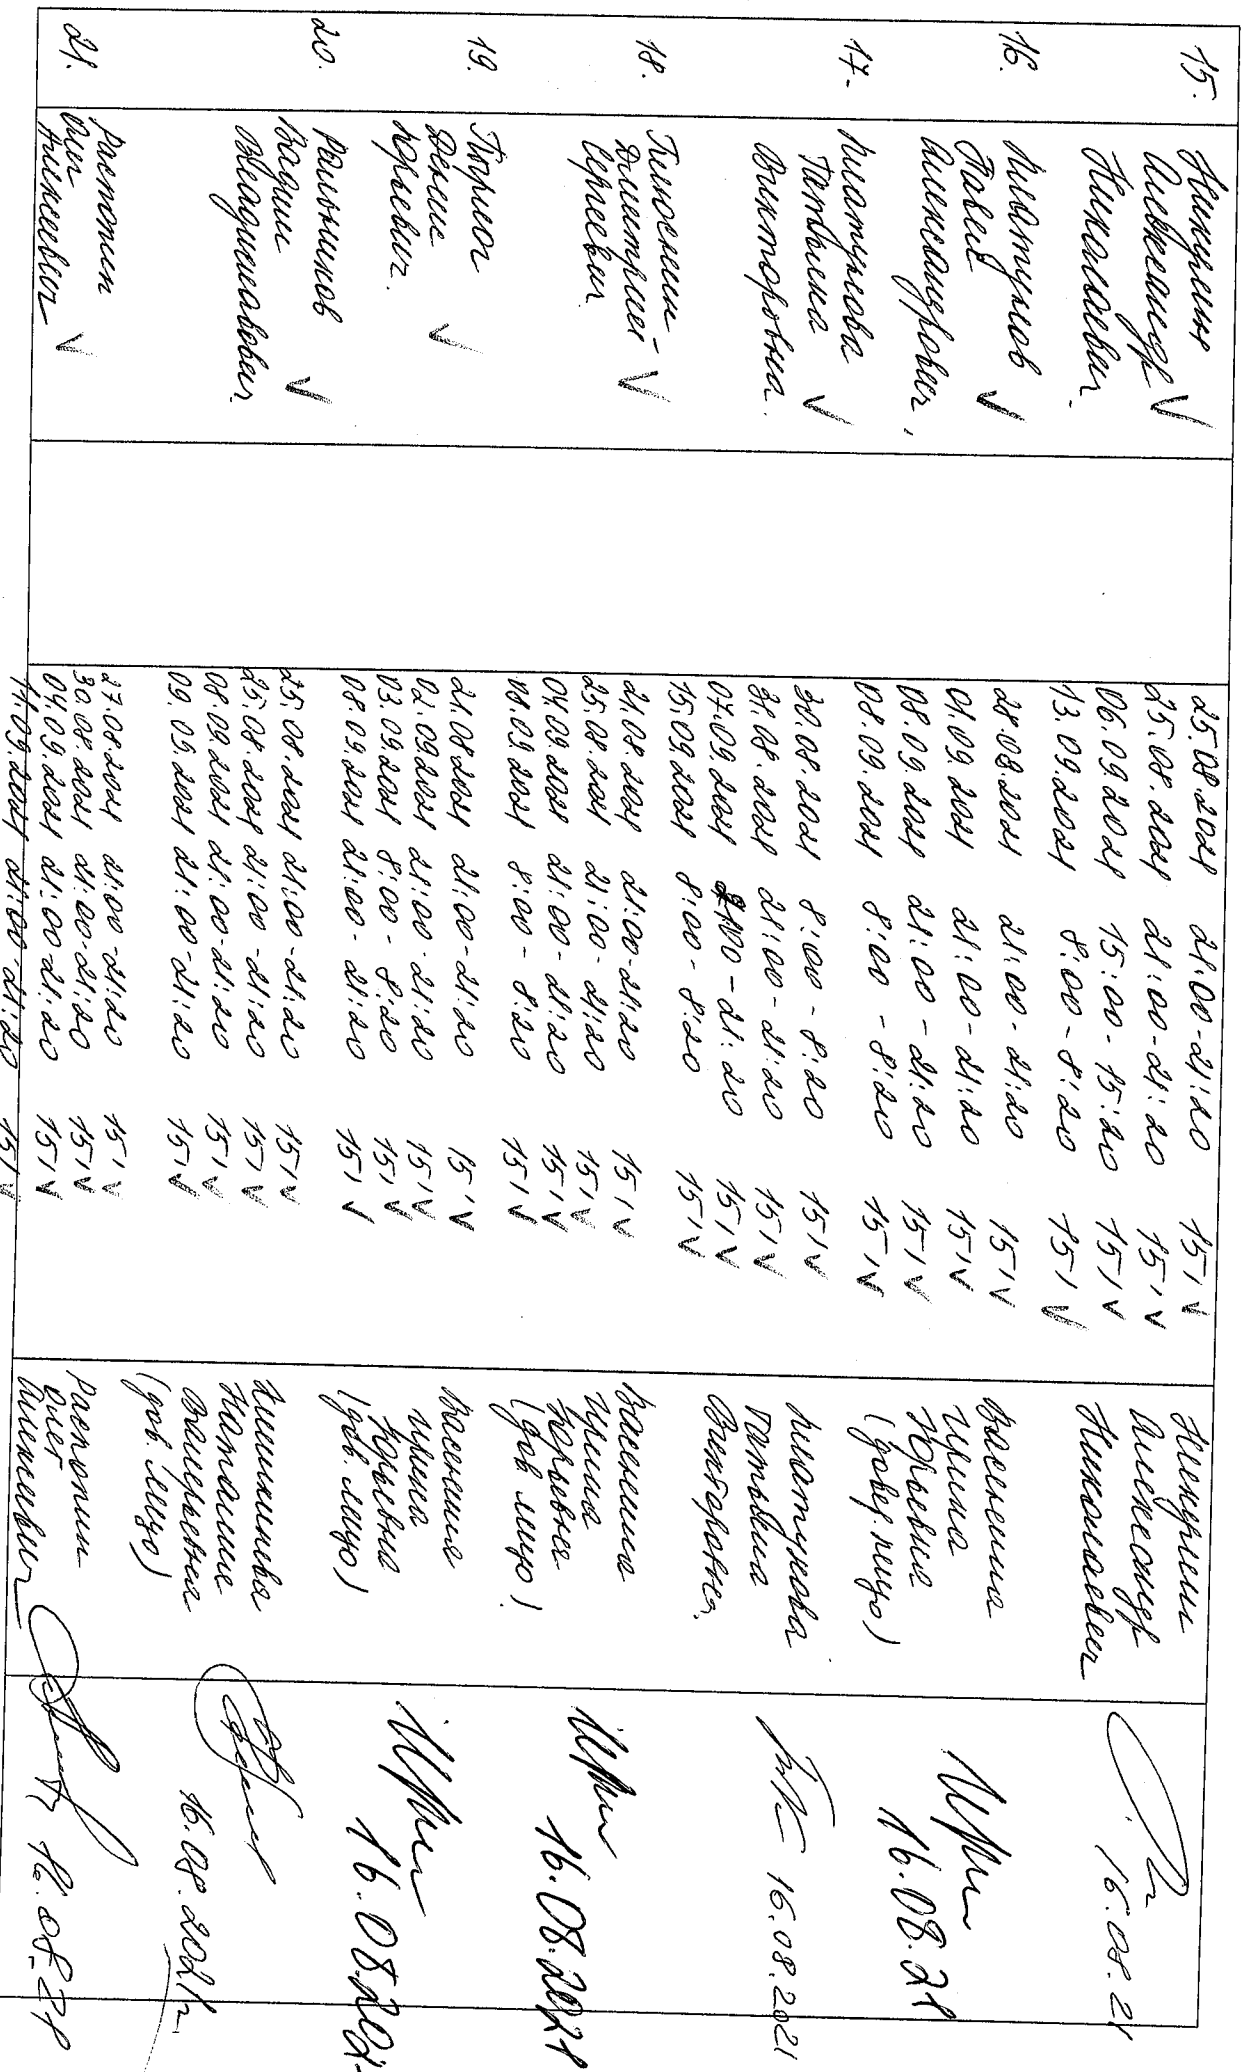 15.
Никулин
Александр V
Николаевич.
25.08.2021 21:00-21:20 15' V
25.08.2021 21:00-21:20 15' V
06.09.2021 15:00-15:20 15' V
13.09.2021 8:00-8:20 15' V
Александр
Николаевич
16.08.21
16.
Павел
Александрович,
28.08.2021 21:00-21:20 15' V
01.09.2021 21:00-21:20 15' V
08.09.2021 21:00-21:20 15' V
08.09.2021 8:00-8:20 15' V
Ирина
Юрьевна
(довер. лицо)
16.08.21
17.
Татьяна V
Викторовна.
30.08.2021 8:00-8:20 15' V
31.08.2021 21:00-21:20 15' V
07.09.2021 2100-21:20 15' V
15.09.2021 8:00-8:20 15' V
Татьяна
Викторовна.
16.08.2021
18.
Дмитрий V
Сергеевич
21.08.2021 21:00-21:20 15' V
25.08.2021 21:00-21:20 15' V
04.09.2021 21:00-21:20 15' V
8:00-8:20 15' V
Ирина
Юрьевна
(дов. лицо)
16.08.2021
19.
Денис V
Юрьевич.
21.08.2021 21:00-21:20 15' V
02.09.2021 21:00-21:20 15' V
03.09.2021 8:00-8:20 15' V
08.09.2021 21:00-21:20 15' V
Ирина
Юрьевна
(дов. лицо)
16.08.202
20.
Вадим V
Владиславович.
25.08.2021 21:00-21:20 15' V
25.08.2021 21:00-21:20 15' V
08.09.2021 21:00-21:20 15' V
09.09.2021 21:00-21:20 15' V
Наталия
Валерьевна
(дов. лицо)
16.08.2021г.
21.
Распопин
Олег
Алексеевич V
27.08.2021 21:00-21:20 15' V
30.08.2021 21:00-21:20 15' V
04.09.2021 21:00-21:20 15' V
11.09.2021 21:00-21:20 15' V
Распопин
Олег
Алексеевич
16.08.21